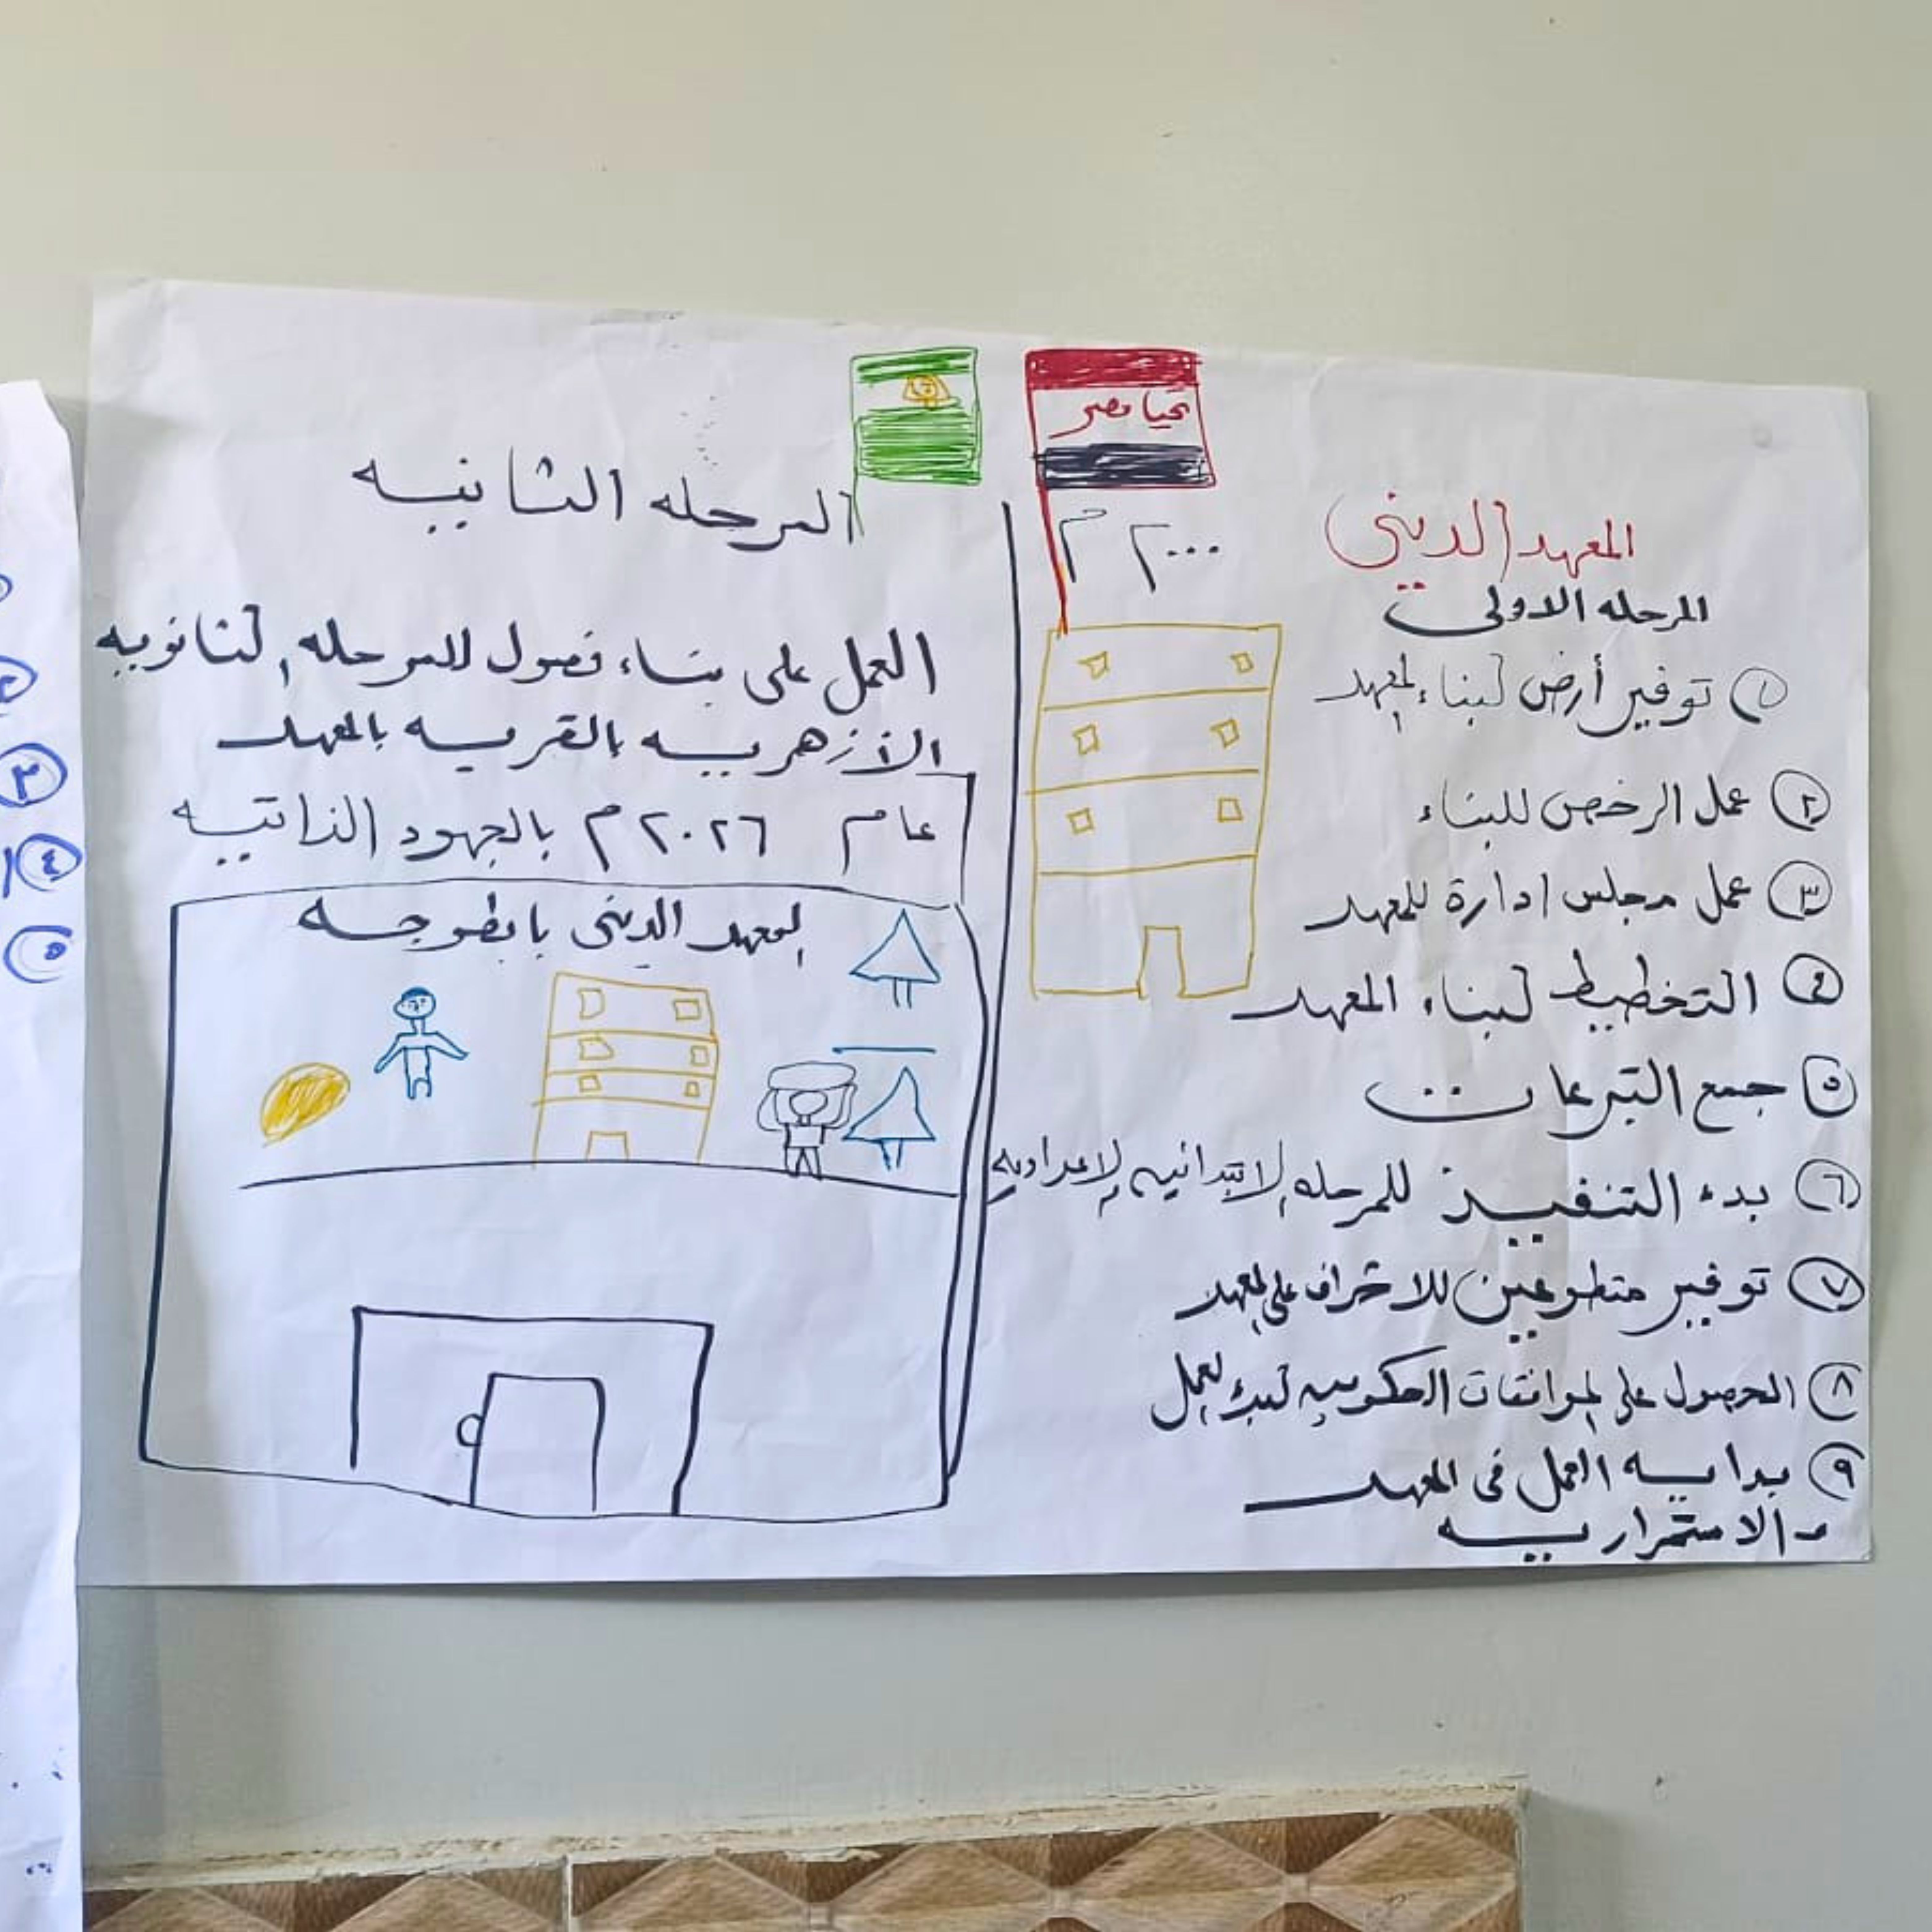 تحيا مصر
٢٠٠٠ م
المعهد الدينى
المرحله الاولى
١ توفير أرض لبناء المعهد
٢ عمل الرخص للبناء
٣ عمل مجلس ادارة للمعهد
٤ التخطيط لبناء المعهد
٥ جمع التبرعات
٦ بدء التنفيذ للمرحله الابتدائيه الاعداديه
٧ توفير متطوعين للاشراف على المعهد
٨ الحصول على الموافقات الحكوميه لبدء العمل
٩ بدايه العمل فى المعهد
والاستمراريه
المرحله الثانيه
العمل على بناء فصول للمرحله الثانويه
الازهريه بالقريه بالمعهد
عام ٢٠٢٦ م بالجهود الذاتيه
المعهد الدينى بابطوجه
٣
٤
٥